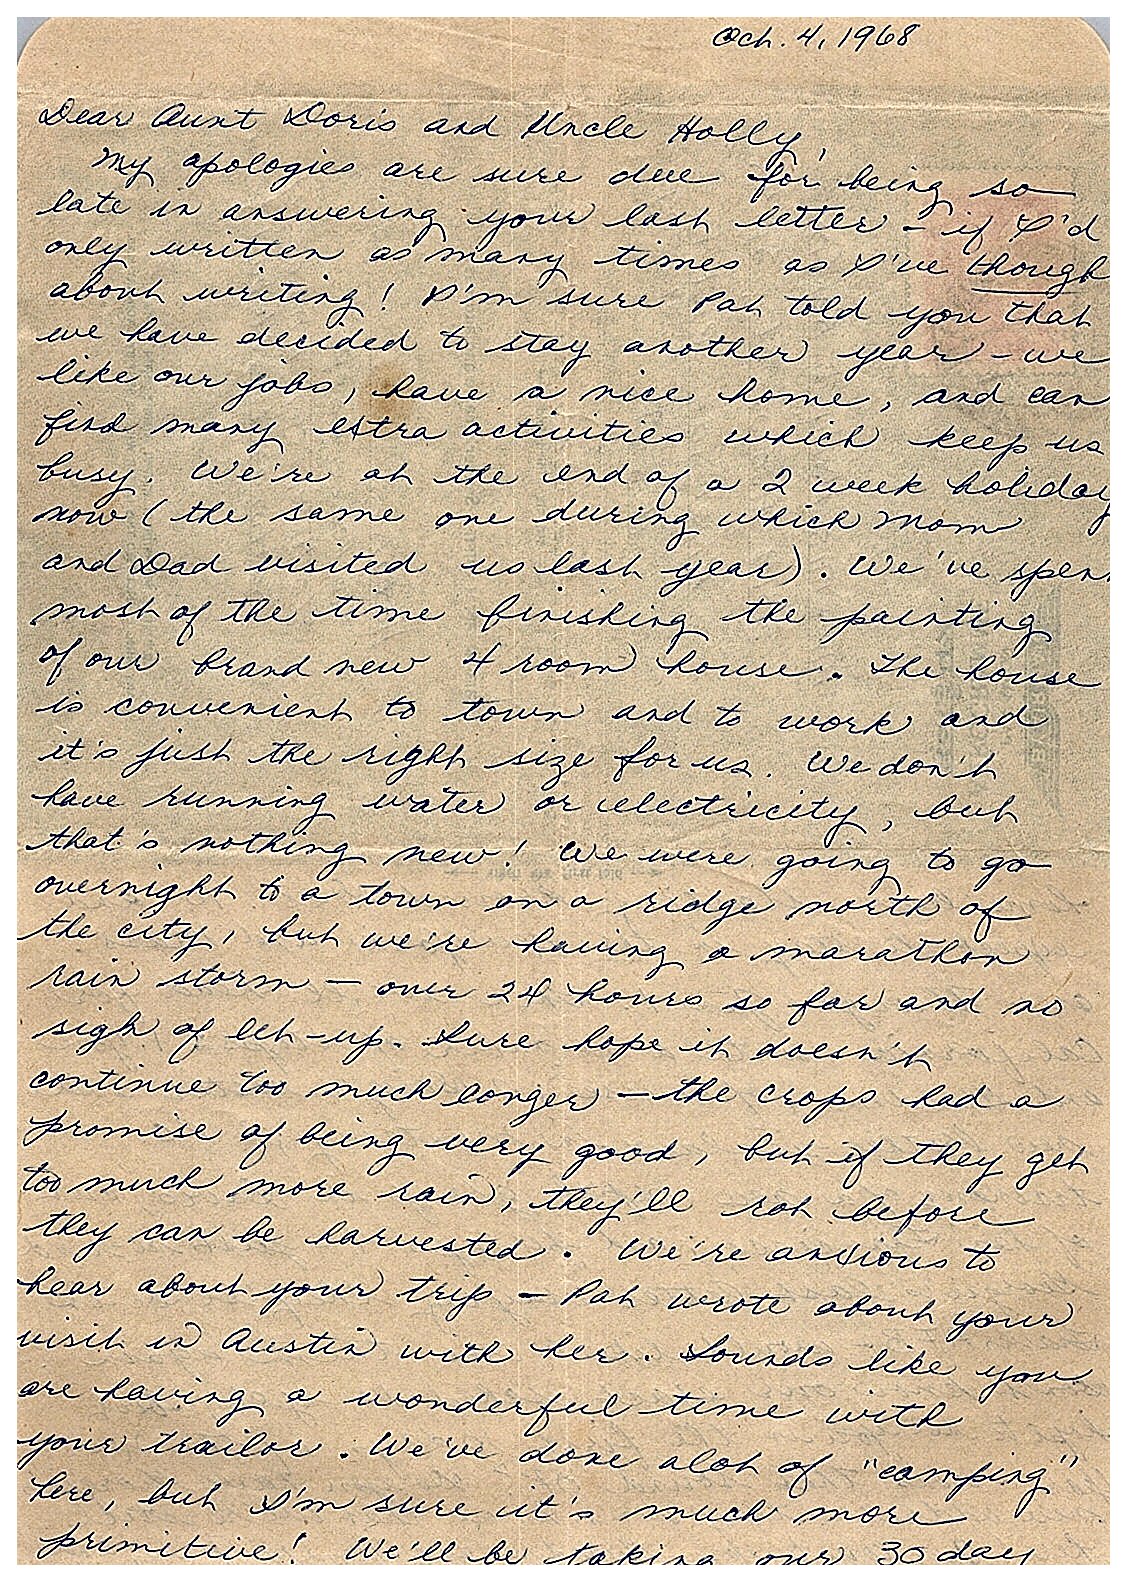 Oct. 4, 1968
Dear Aunt Doris and Uncle Holly,
My apologies are sure due for being so
late in answering your last letter - if I'd
only written as many times as I've though
about writing! I'm sure Pat told you that
we have decided to stay another year - we
like our jobs, have a nice home, and can
find many extra activities which keep us
busy. We're at the end of a 2 week holiday
now (the same one during which Mom
and Dad visited us last year). We've spen
most of the time finishing the painting
of our brand new 4 room house. The house
is convenient to town and to work and
it's just the right size for us. We don't
have running water or electricity, but
that's nothing new! We were going to go
overnight to a town on a ridge north of
the city, but we're having a marathon
rain storm - over 24 hours so far and no
sign of let-up. Sure hope it doesn't
continue too much longer - the crops had a
promise of being very good, but if they get
too much more rain, they'll rot before
they can be harvested. We're anxious to
hear about your trip - Pat wrote about your
visit in Austin with her. Sounds like you
are having a wonderful time with
your trailor. We've done alot of "camping"
here, but I'm sure it's much more
primitive! We'll be taking our 30 day